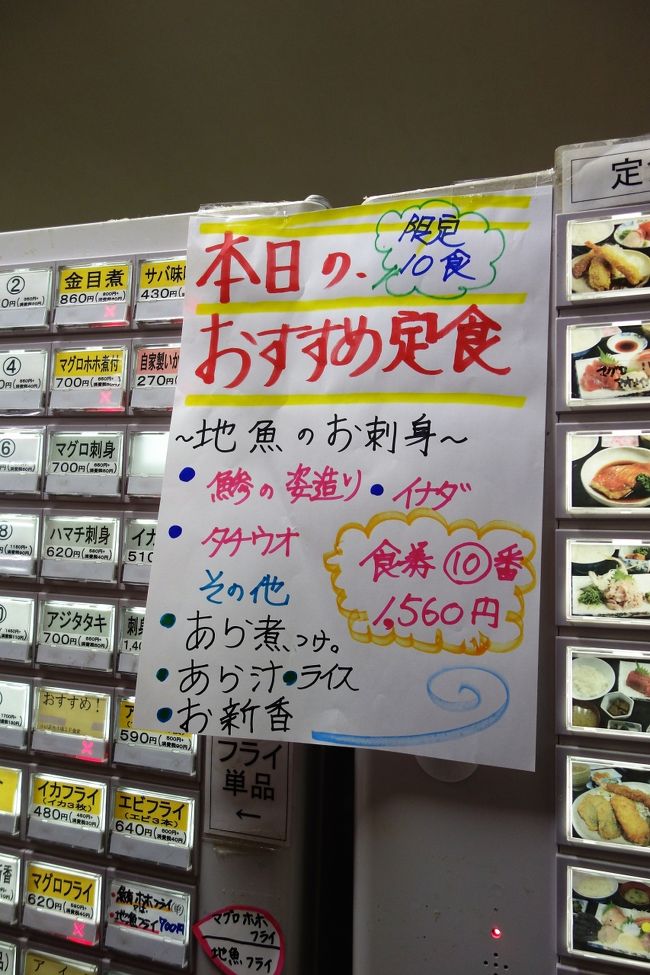 限定
10食
本日の、
おすすめ定食
~地魚のお刺身~
・鯵の姿造り ・イナダ
・タチウオ
食券⑩番
1,560円
その他
・あら煮、つけ。
・あら汁 ・ライス
・お新香
②
金目煮
860円
サバ味
430円
④
マグロホホ煮付
700円
自家製いか
270円
⑥
マグロ刺身
700円
ハマチ刺身
620円
イナ
510
アジタタキ
700円
刺身
おすすめ!
590円
イカフライ
(イカ3枚)
480円
エビフライ
(エビ3本)
640円
フライ
単品
←
マグロフライ
620円
地魚フライ 700円
マグロホホ
フライ
地魚フライ
定